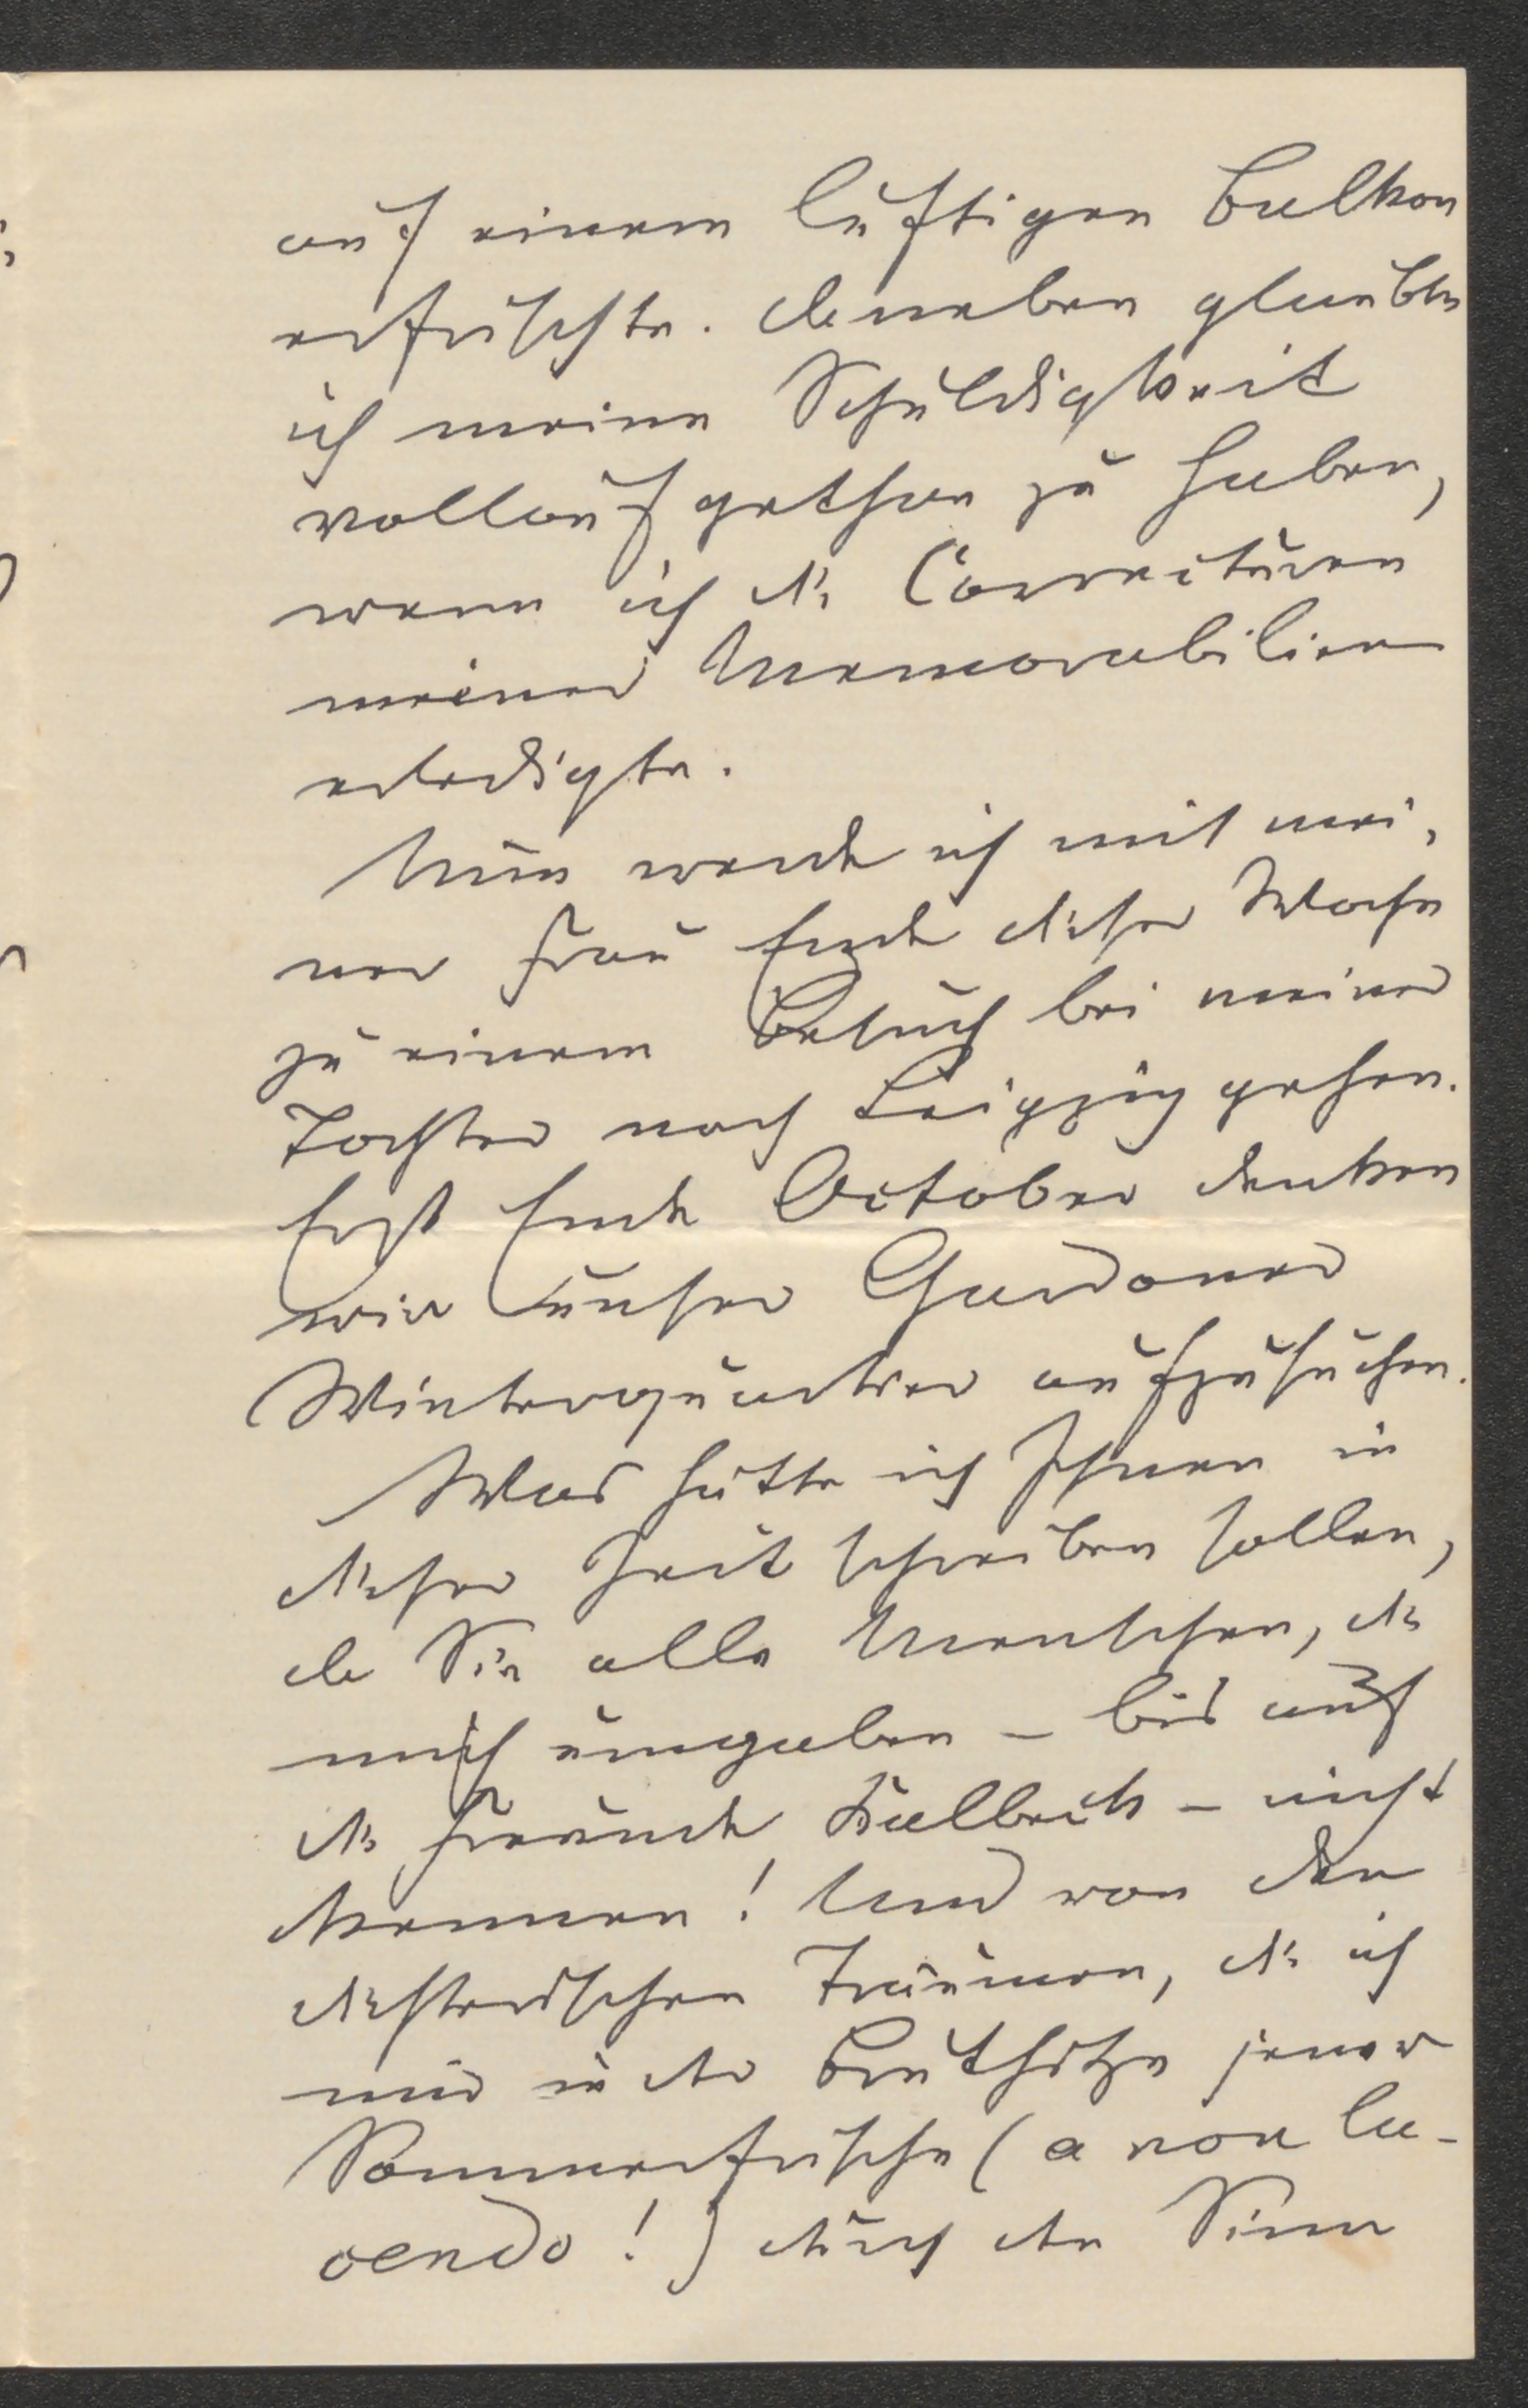 auf einem luftigen Balkon
erfrischte. Daneben glaubte
ich meine Schuldigkeit
vollauf gethan zu haben,
wenn ich die Correcturen
meiner Memorabilien
erledigte.
Nun werde ich mit mei-
ner Frau Ende dieser Woche
zu einem Besuch bei meiner
Tochter nach Leipzig gehen.
Erst Ende October denken
wir unser Gardoner
Winterquartier aufzusuchen.
Was hätte ich Ihnen in
dieser Zeit schreiben sollen,
da Sie alle Menschen, die
mich umgaben – bis auf
die Freunde Kalbeck – nicht
kennen! Und von den
dichterischen Träumen, die ich
mir in der Bruthitze jener
Sommerfrische (a non lu-
cendo!) durch den Sinn